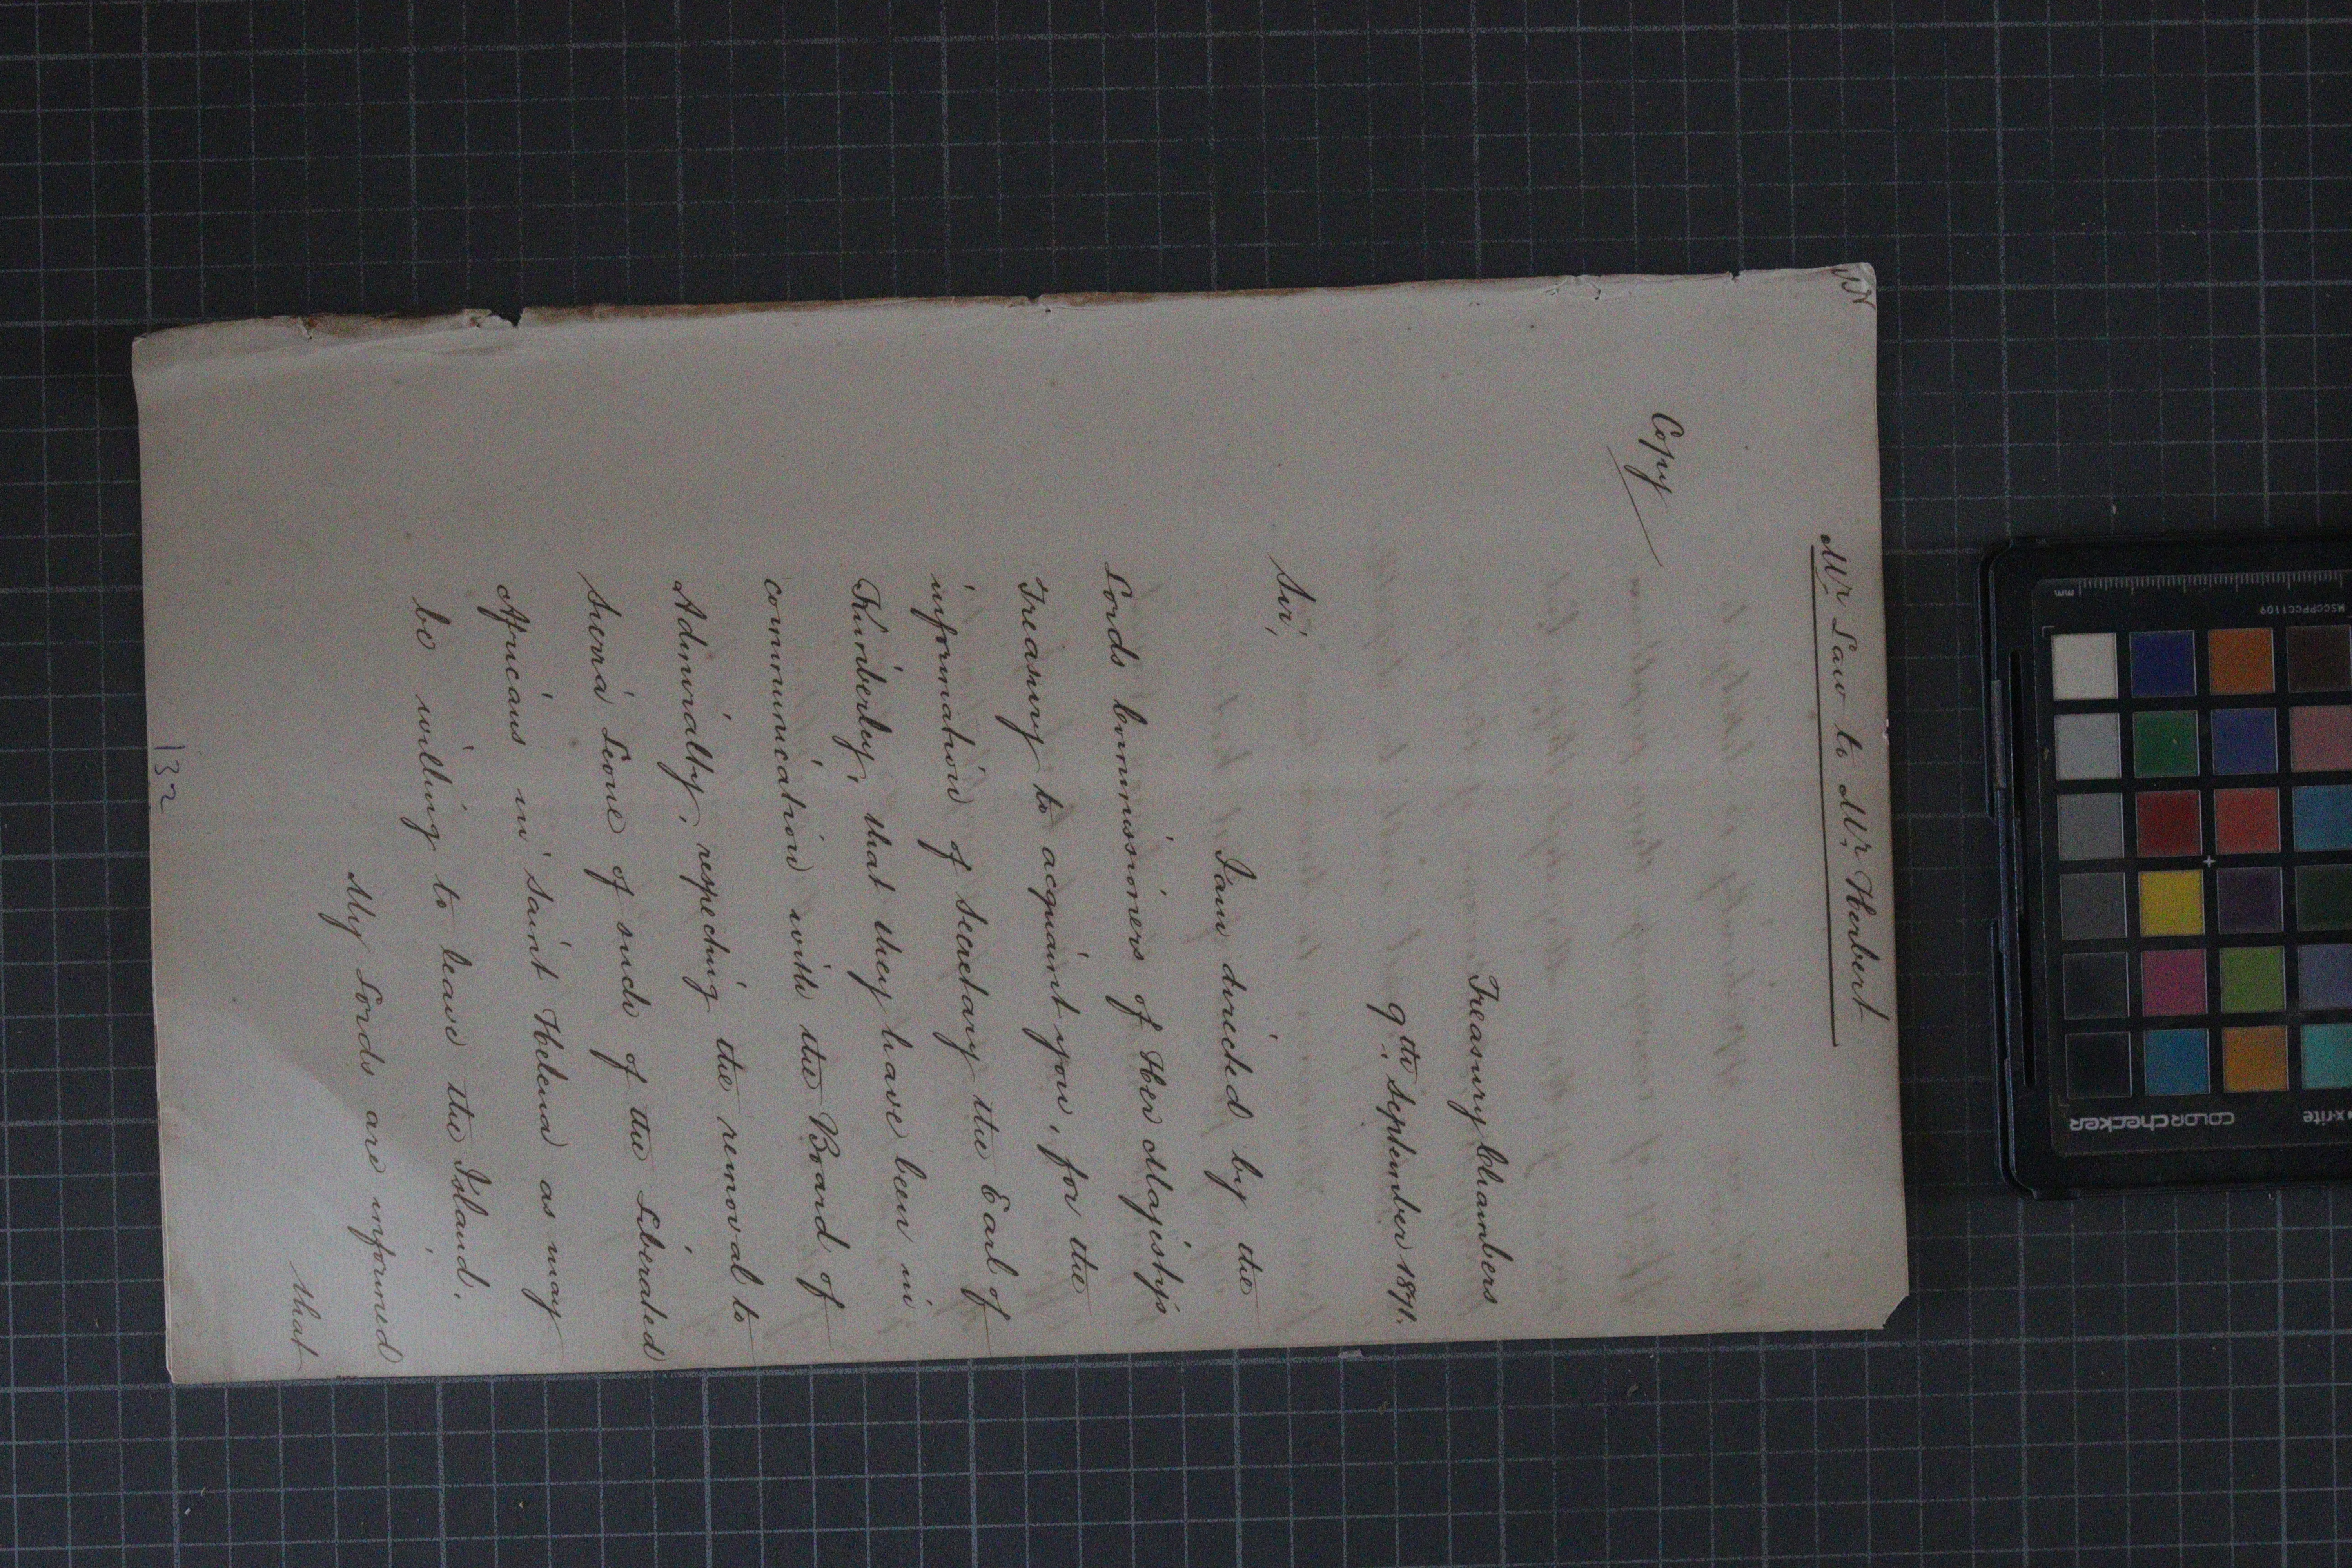 Mr Law to Mr Herbert
Copy
Treasury Chambers
9th September 1871.
Sir,
I am directed by the
Lords Commissioners of Her Majesty's
Treasury to acquaint you, for the
information of Secretary the Earl of
Kimberley, that they have been in
communication with the Board of
Admiralty, respecting the removal to
Sierra Leone of such of the Liberated
Africans in Saint Helena as may
be willing to leave the Island.
My Lords are informed
that
132
mm
MSCCPPCC1109
x-rite
COLORchecker